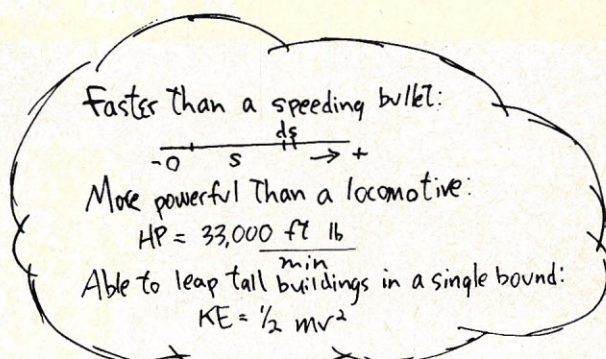 Faster than a speeding bullet:
ds
-0 s → +
More powerful than a locomotive:
HP = 33,000 ft lb
min
Able to leap tall buildings in a single bound:
KE = ½ mv²